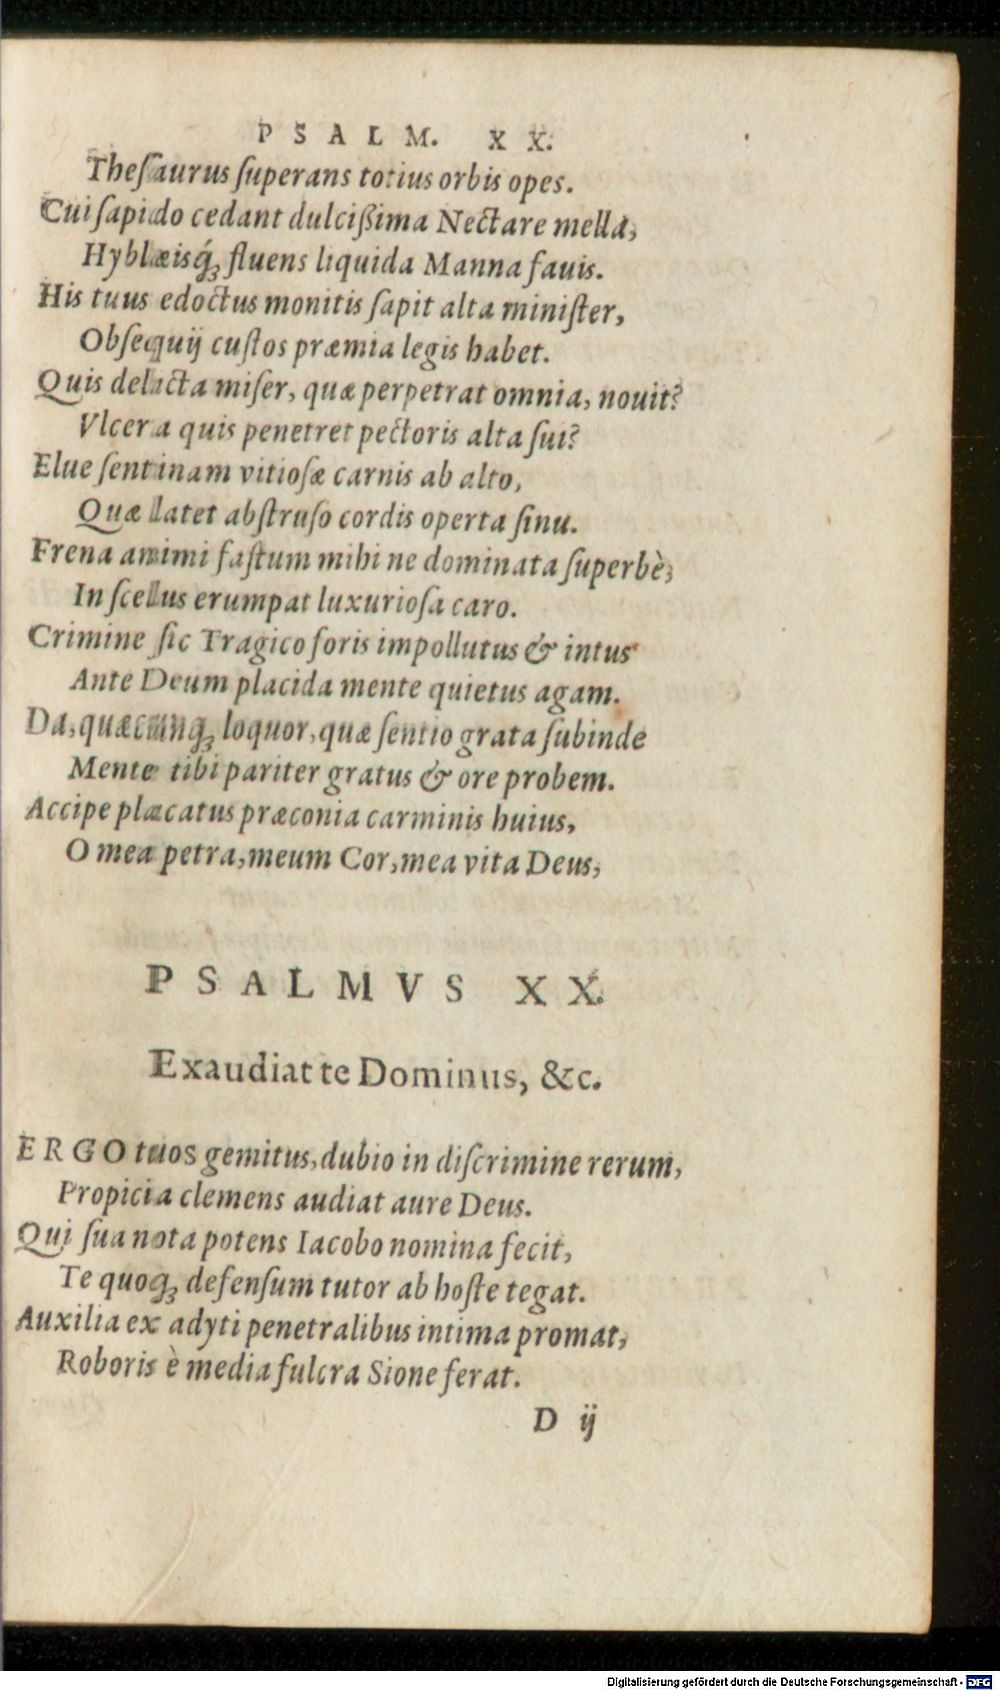 PSALM. XX.
Theſaurus ſuperans totius orbis opes.
Cui ſapido cedant dulcißima Nectare mella,
Hyblæisq́ꝫ fluens liquida Manna fauis.
His tuus edoctus monitis ſapit alta miniſter,
Obſequij cuſtos præmia legis habet.
Quis delicta miſer, quæ perpetrat omnia, nouit?
Vlcera quis penetret pectoris alta ſui?
Elue ſentinam vitioſæ carnis ab alto,
Quæ latet abſtruſo cordis operta ſinu.
Frena animi faſtum mihi ne dominata ſuperbè,
In ſcelus erumpat luxurioſa caro.
Crimine ſic Tragico foris impollutus & intus
Ante Deum placida mente quietus agam.
Da, quæcunqꝫ loquor, quæ ſentio grata ſubinde
Mente tibi pariter gratus & ore probem.
Accipe placatus præconia carminis huius,
O mea petra, meum Cor, mea vita Deus,
PSALMVS XX.
Exaudiat te Dominus, &c.
ERGO tuos gemitus, dubio in diſcrimine rerum,
Propicia clemens audiat aure Deus.
Qui ſua nota potens Iacobo nomina fecit,
Te quoqꝫ defenſum tutor ab hoſte tegat.
Auxilia ex adyti penetralibus intima promat,
Roboris è media fulcra Sione ferat.
D ij
Digitalisierung gefördert durch die Deutsche Forschungsgemeinschaft - DFG